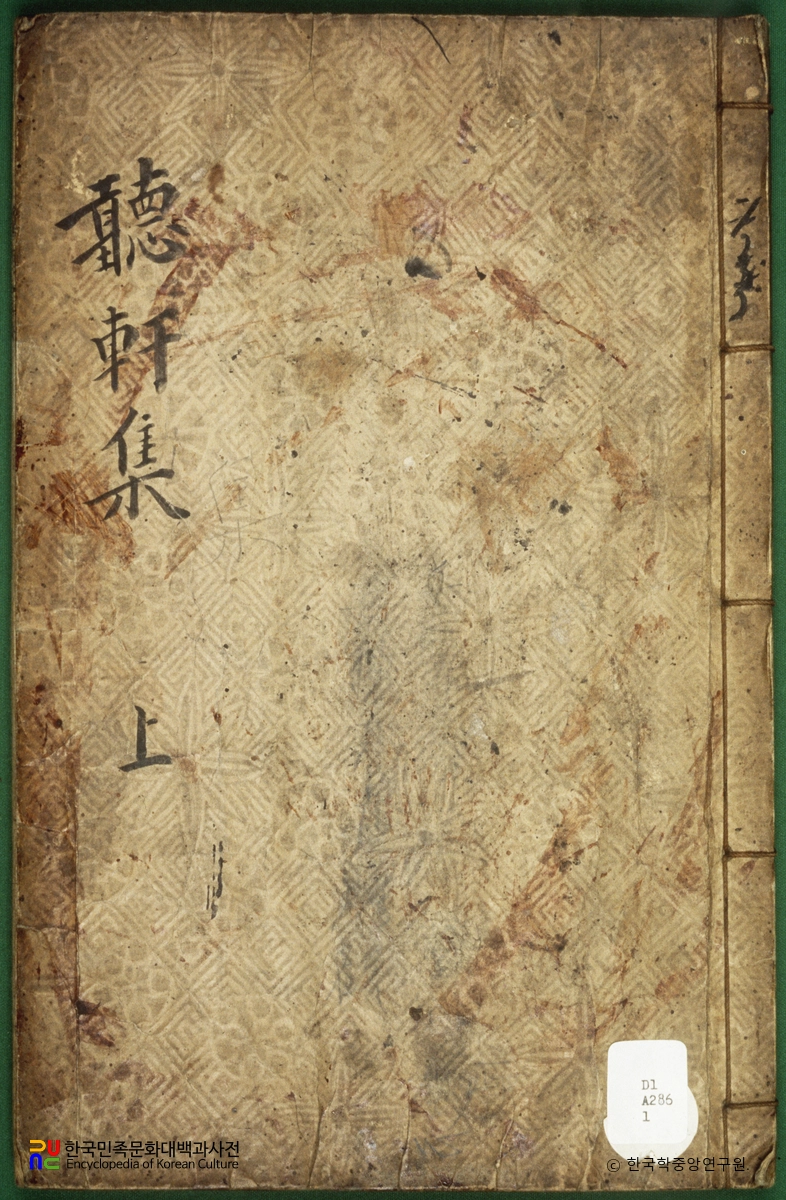 聽軒集
上
D1
A286
1
한국민족문화대백과사전
Encyclopedia of Korean Culture
© 한국학중앙연구원